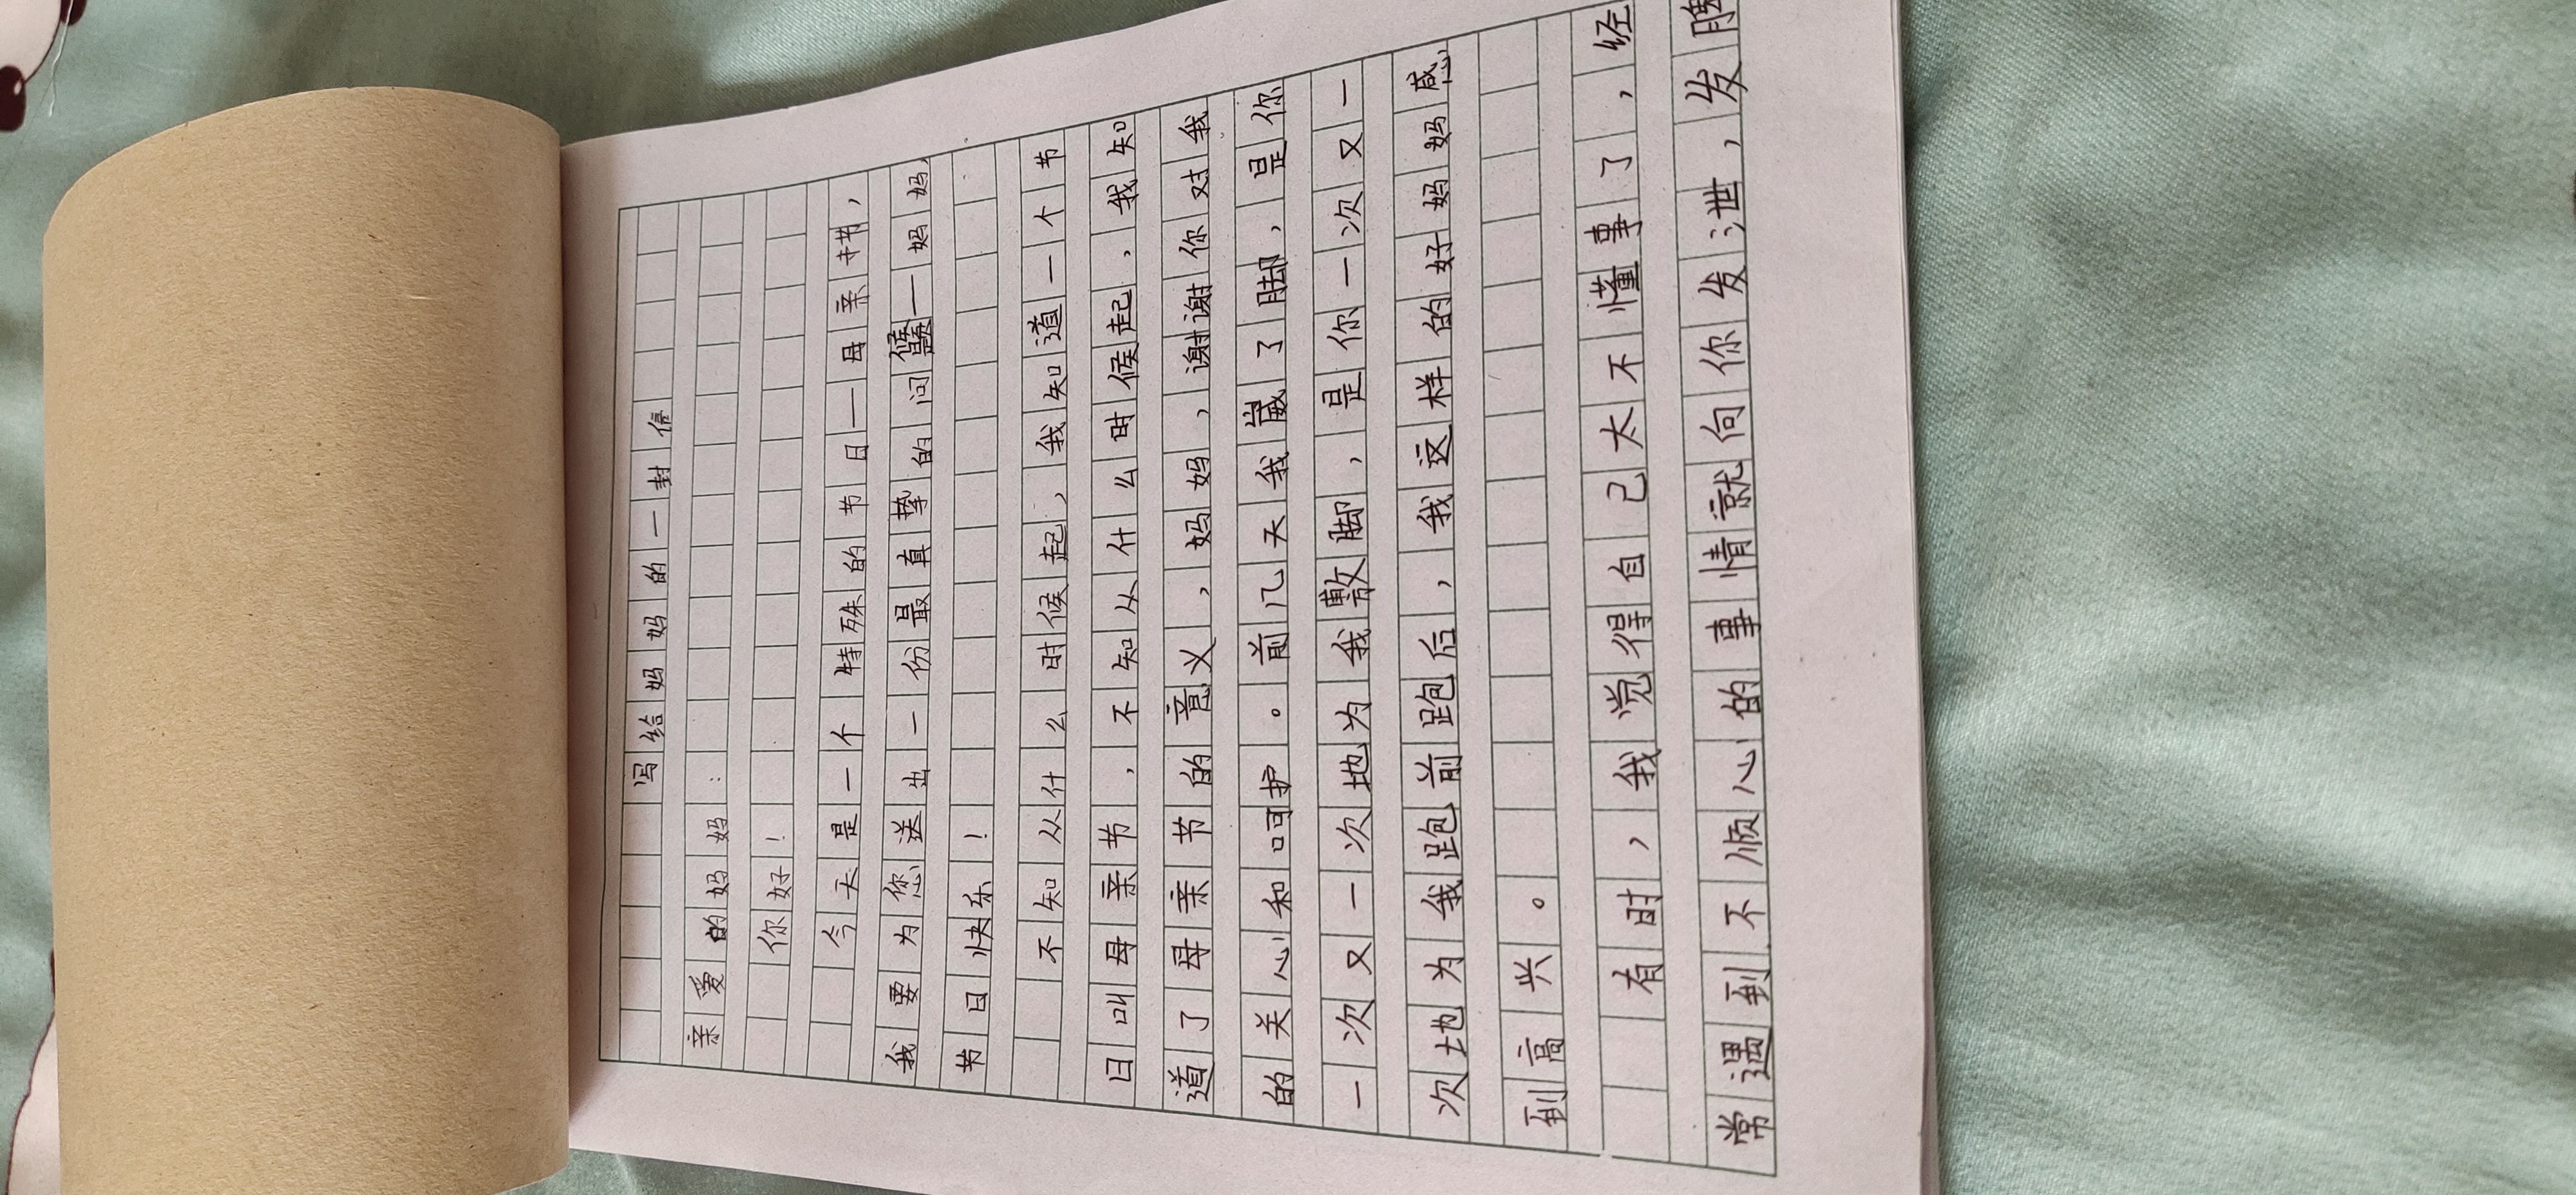 写给妈妈的一封信
亲爱的妈妈：
你好！
今天是一个特殊的节日——母亲节，
我要为您送出一份最真挚的问候——妈妈，
节日快乐！
不知从什么时候起，我知道一个节
日叫母亲节，不知从什么时候起，我知
道了母亲节的意义，妈妈，谢谢你对我
的关心和呵护。前几天我崴了脚，是你
一次又一次地为我敷脚，是你一次又一
次地为我跑前跑后，我这样的好妈妈感
到高兴。
有时，我觉得自己太不懂事了，经
常遇到不顺心的事情就向你发泄，发脾